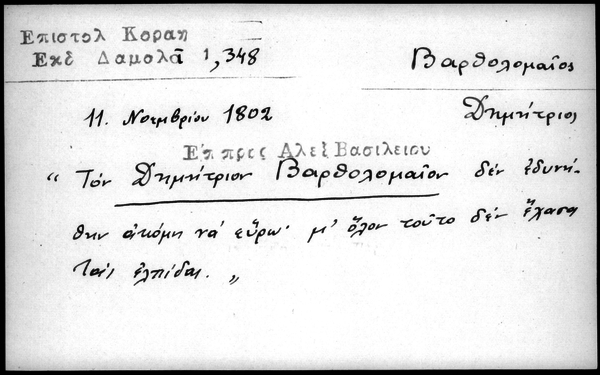 Επιστολ Κοραη
Εκδ Δαμαλᾶ 1,348
Βαρθολομαῖος
Δημήτριος
11. Νοεμβρίου 1802
Επ προς Αλεξ Βασιλειου
“ Τόν Δημήτριον Βαρθολομαῖον δέν ἐδυνή-
θην ἀκόμη νά εὕρω· μ' ὅλον τοῦτο δέν ἔχασα
ταίς ἐλπίδαι. „